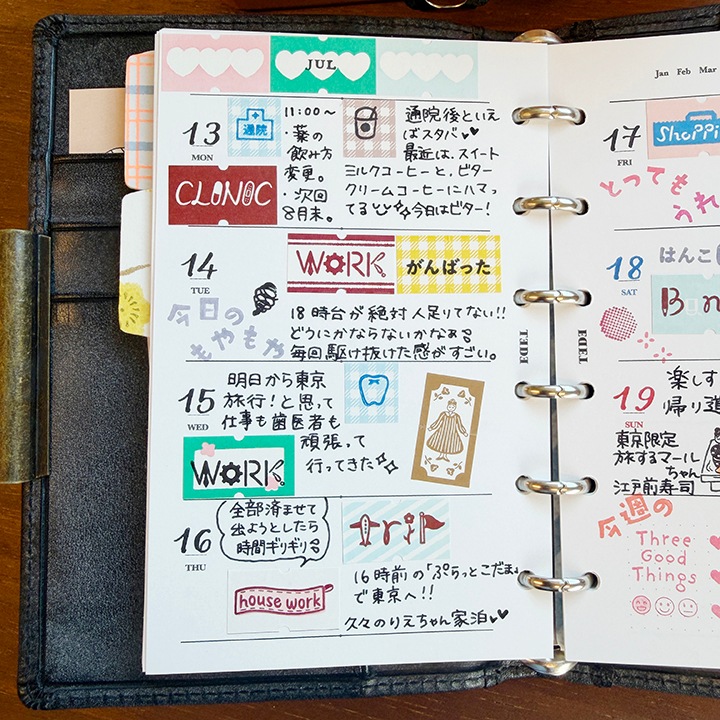 JUL
13
MON
通院
11:00〜
・薬の
飲み方
変更。
・次回
8月末。
通院後といえ
ばスタバ♥
最近は、スイート
ミルクコーヒーと、ビター
クリームコーヒーにハマっ
てる 今日はビター!
CLINIC
14
TUE
WORK
がんばった
今日の
もやもや
18時台が絶対人足りてない!!
どうにかならないかなぁ
毎回駆け抜けた感がすごい。
15
WED
明日から東京
旅行!と思って
仕事も歯医者も
頑張って
行ってきた
WORK
16
THU
全部済ませて
出ようとしたら
時間ギリギリ
trip
house work
16時前の「ぷらっとこだま」
で東京へ!!
久々のりえちゃん家泊♥
TEDE
TEDE
Jan Feb Mar
17
FRI
Shoppi
とっても
うれ
18
SAT
はんこ
19
SUN
楽しす
帰り道
東京限定
旅するマール
ちゃん
江戸前寿司
今週の
Three
Good
Things